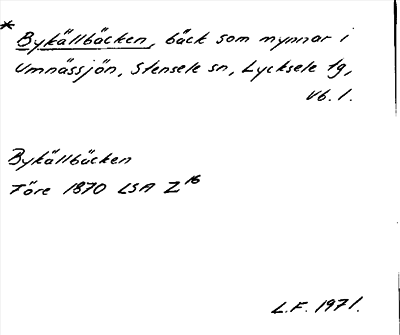 * Bykällbäcken, bäck som mynnar i
Umnässjön, Stensele sn, Lycksele tg,
Vb. l.
Bykällbäcken
Före 1870 LSA Z 16
L.F. 1971.